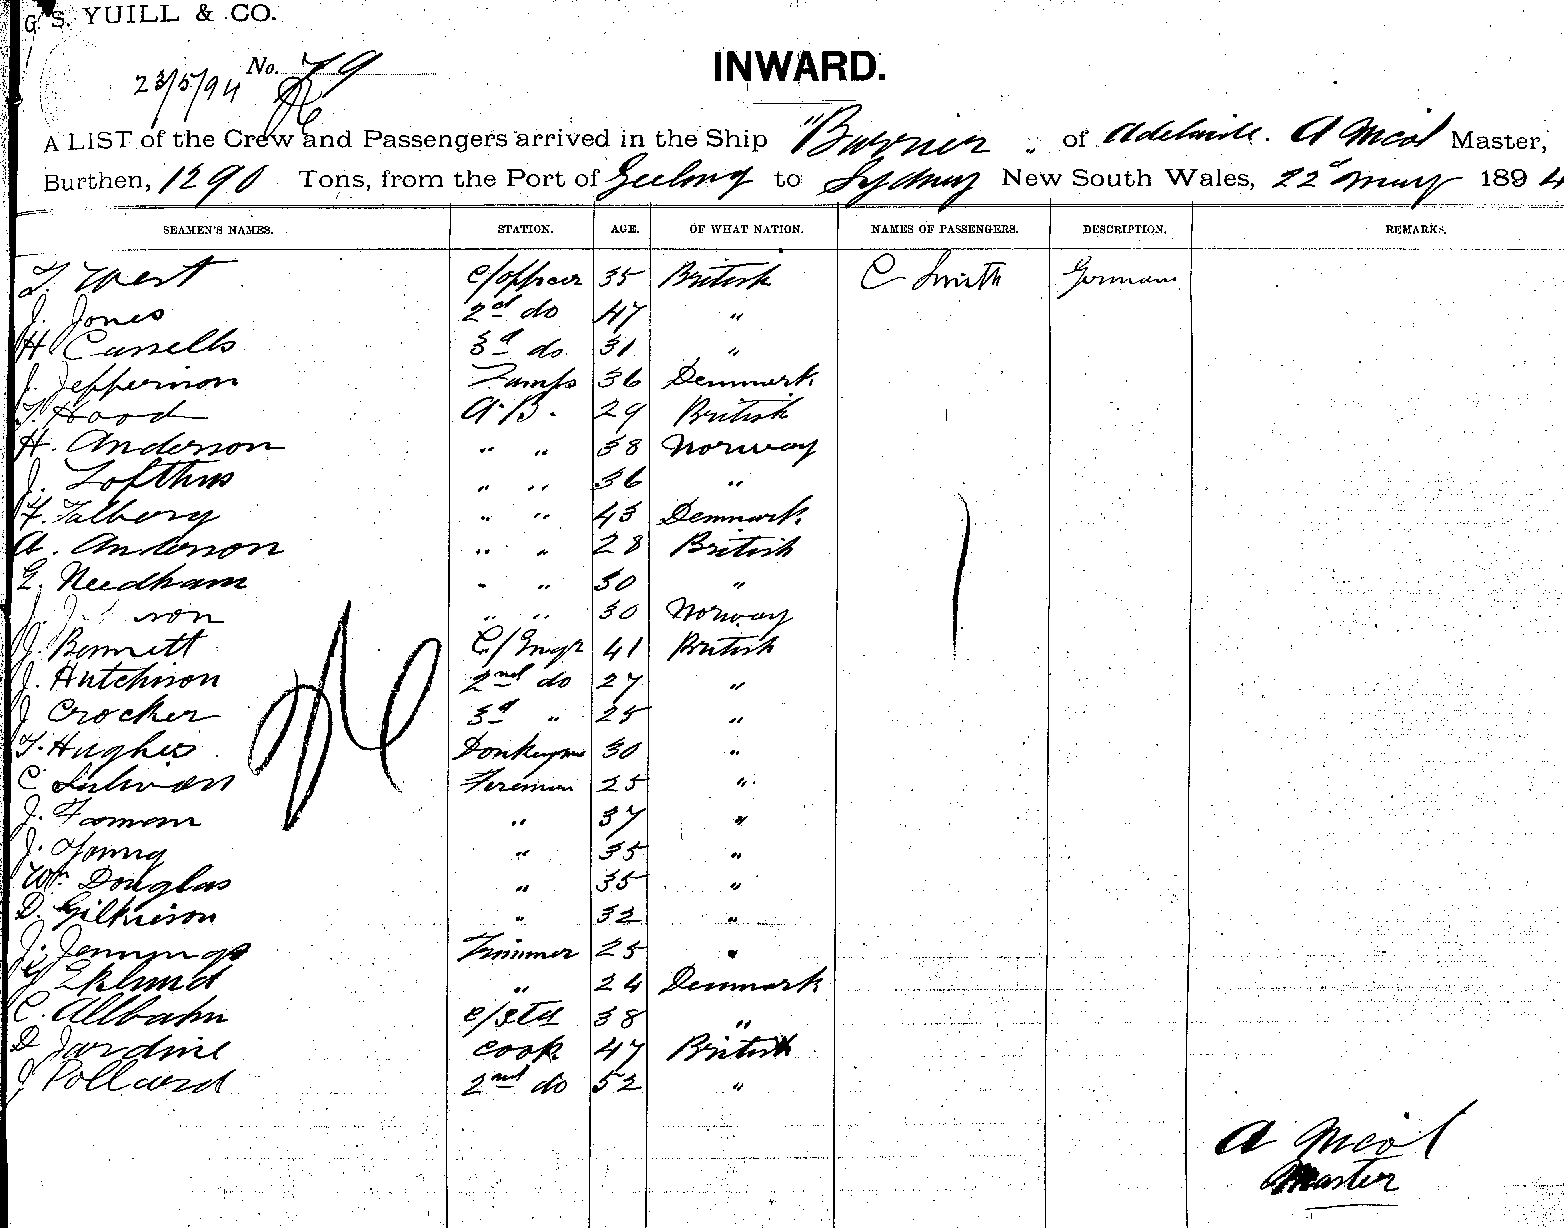 G. S. YUILL & CO.
23/5/94 No. 79
INWARD.
A LIST of the Crew and Passengers arrived in the Ship "Barrier" of Adelaide. A Nicol Master,
Burthen, 1290 Tons, from the Port of Geelong to Sydney New South Wales, 22d May 1894
SEAMEN'S NAMES. STATION. AGE. OF WHAT NATION. NAMES OF PASSENGERS. DESCRIPTION. REMARKS.
T. West c/officer 35 British C Smith German
J. Jones 2nd do 47 "
H Cassells 3d do 31 "
J. Jefferson Lamps 36 Denmark
T. Hood A.B. 29 British
H. Anderson " " 38 Norway
J. Lofthus " " 36 "
F. Falberg " " 43 Denmark
A. Anderson " " 28 British
E. Needham " " 30 "
J. 30 Norway
J. Bennett C/Engr 41 British
J. Hutchison 2nd do 27 "
J Crocker 3d " 25 "
T. Hughes Donkeyman 30 "
C Sulivan Fireman 25 "
J. " 37 "
J. Young " 35 "
Wm Douglas " 35 "
D. Gilkison " 32 "
J. Jennings Trimmer 25 "
Eklund " 24 Denmark
C. Allbahn c/std 38 "
D Jardine cook 47 British
J Pollard 2nd do 52 "
A Nicol
Master